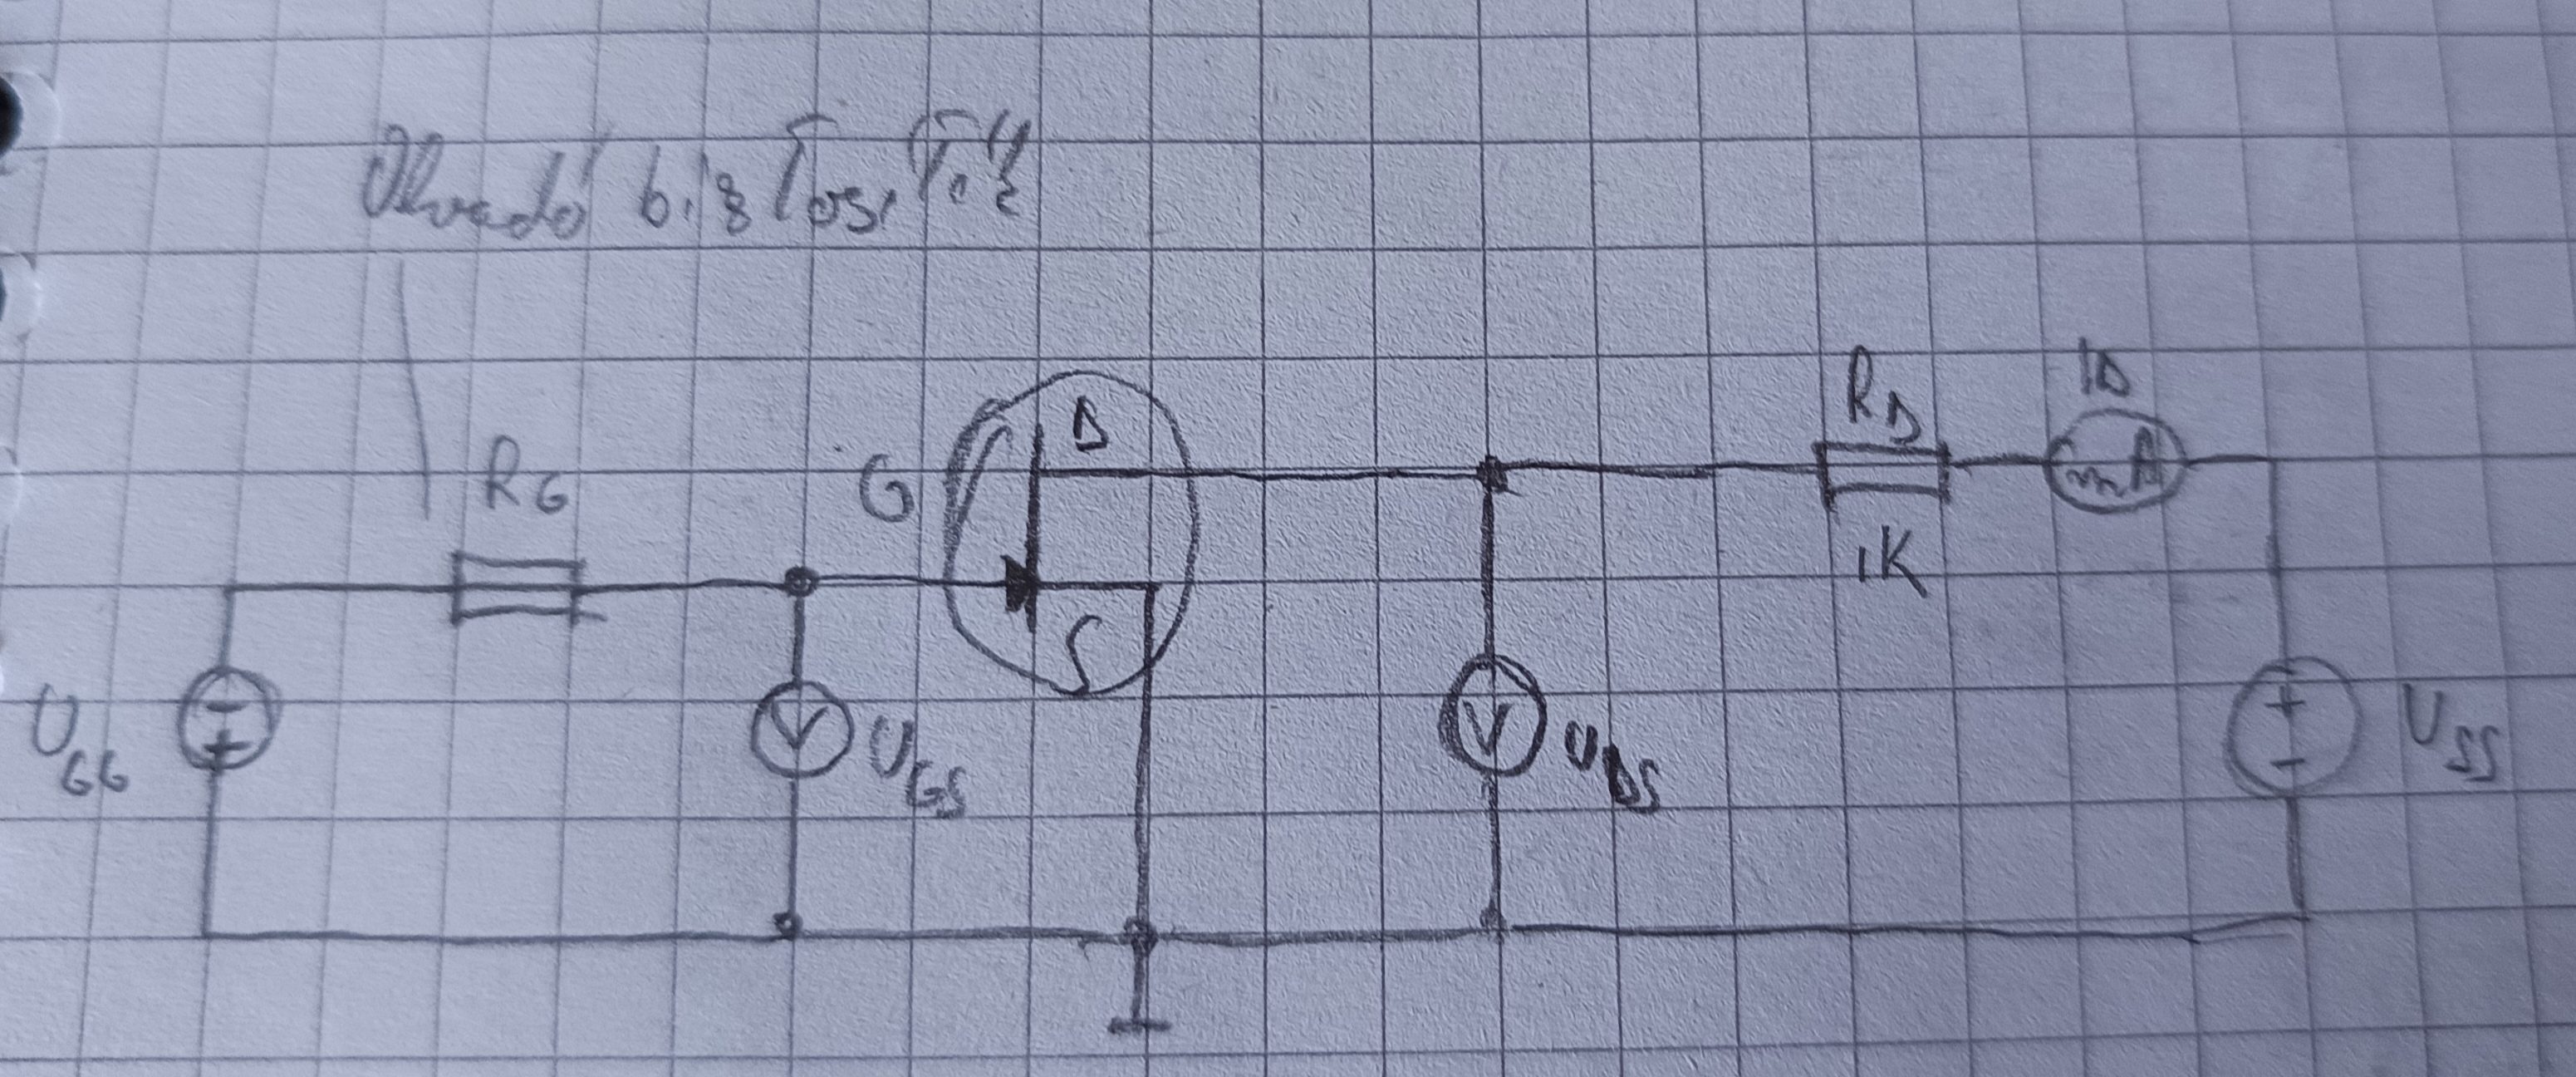 Olvadó biztosíték
R_D
I_D
D
G
R_G
1K
mA
S
U_GG
- +
V
U_GS
V
U_DS
+ -
U_SS